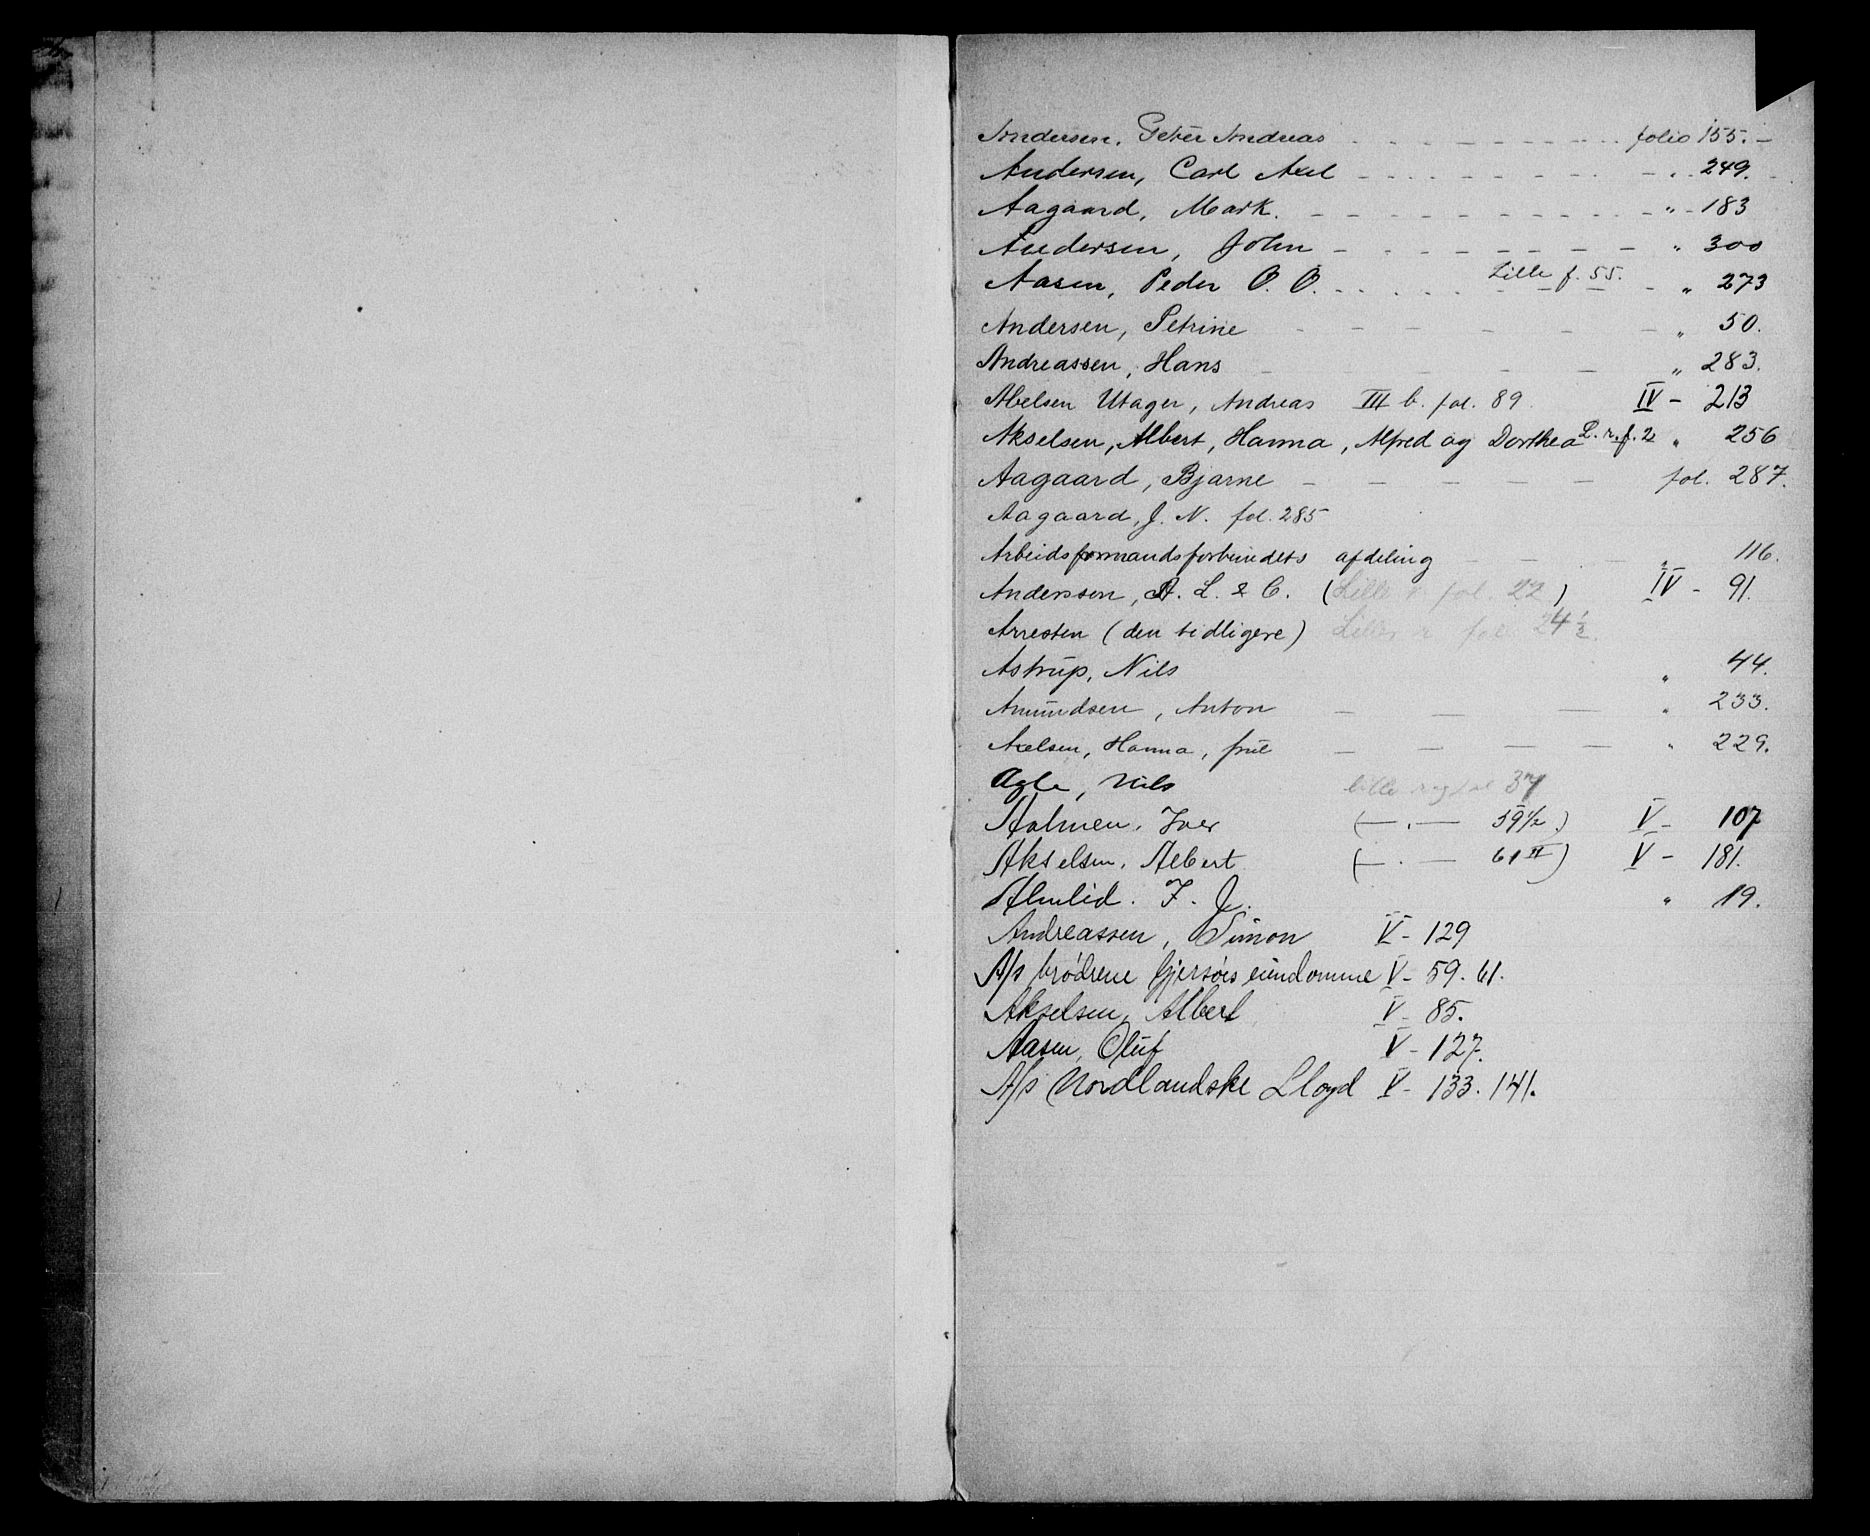 Andersen, Peter Andreas - - - - - - - - folio 155. -
Andersen, Carl Axel - - - - - - - - " 249.
Aagaard, Mark. - - - - - - - - " - 183
Andersen, John - - - - - - - - " 300
Aasen, Peder O. O. - - - - Lille f. 55. - " 273
Andersen, Petrine - - - - - - - " 50.
Andreassen, Hans - - - - - " 283.
Abelsen Utager, Andreas III b. fol. 89. IV - 213
Akselsen, Albert, Hanna, Alfred og Dorthea L. r. f. 2 " 256
Aagaard, Bjarne - - - - - fol. 287.
Aagaard, J. N. fol. 285
Arbeidsformandsforbundets afdeling - - - - " 116.
Anderssen, A. L. & C. (Lille r. fol. 22) IV - 91.
Arresten (den tidligere) Lille r. fol. 24 1/2.
Astrup, Nils " 44.
Amundsen, Anton - - - " 233.
Axelsen, Hanna, frue - - - - " 229.
Agle, Nils lille reg fol 37
Holmen, Iver (— . — 59 1/2) V - 107
Akselsen, Albert (— . — 61 II) V - 181.
Almlid. F. J. " 19.
Andreassen, Simon V - 129
A/s brødrene Gjersøes eiendomme V - 59. 61.
Akselsen, Albert V - 85.
Aasen, Oluf V - 127.
A/s Nordlandske Lloyd V - 133. 141.